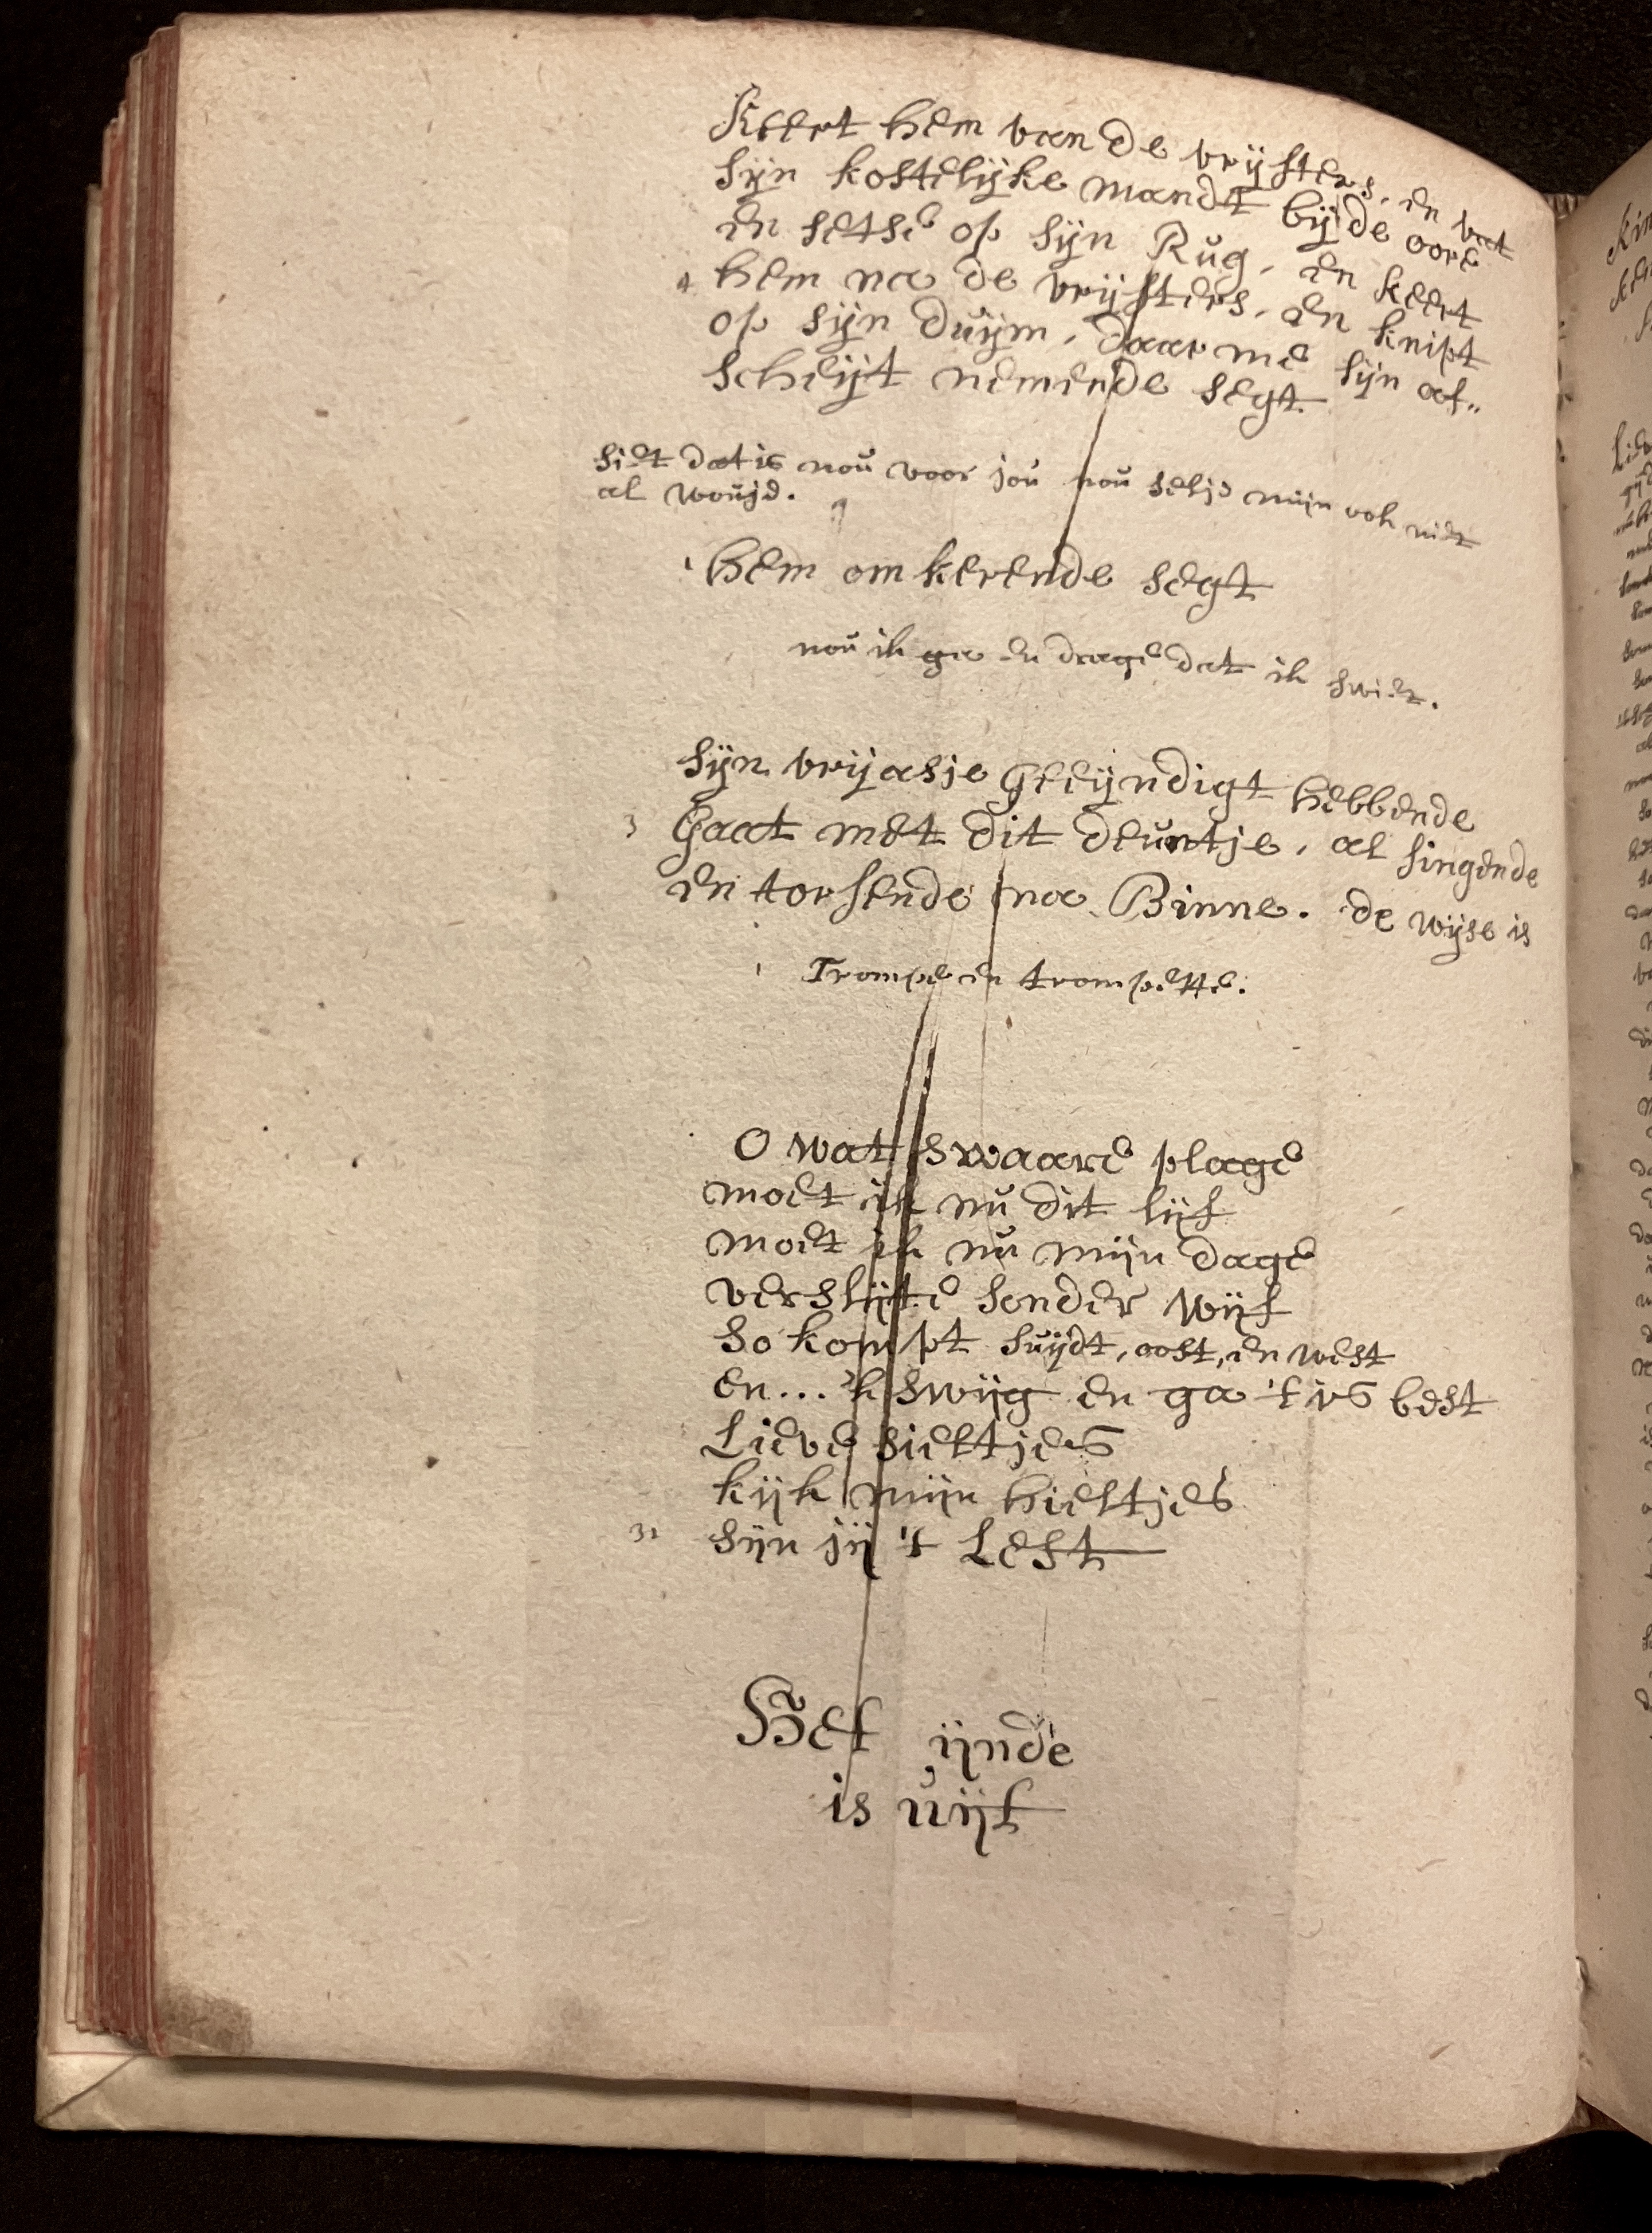 Keert hem van de vrijsters, en vat
sijn kostelijke mandt bij de oore
en setse op sijn Rug, en keert
4 hem na de vrijsters, en knipt
op sijn duijm, daar me sijn af„
scheijt nemende segt.
siet dat is nou voor jou nou selje mijn ook niet
al wouje.
1 hem om kerende segt
nou ik ga en drage dat ik swiet.
sijn vrijasje Geeijndigt hebbende
3 Gaat met dit deuntje, al singende
en torsende na Binne. de wijse is
1 Trompe en trompette.
O wat swaare plage
moet ik nu dit lijf
moet ik nu mijn dage
verslijte sonder wijf
so kompt suijdt, oost, en west
en... 'k swijg en ga 't is best
Lieve sieltjes
kijk mijn hieltjes
31 sijn jij 't Lest
Het ijnde
is uijt